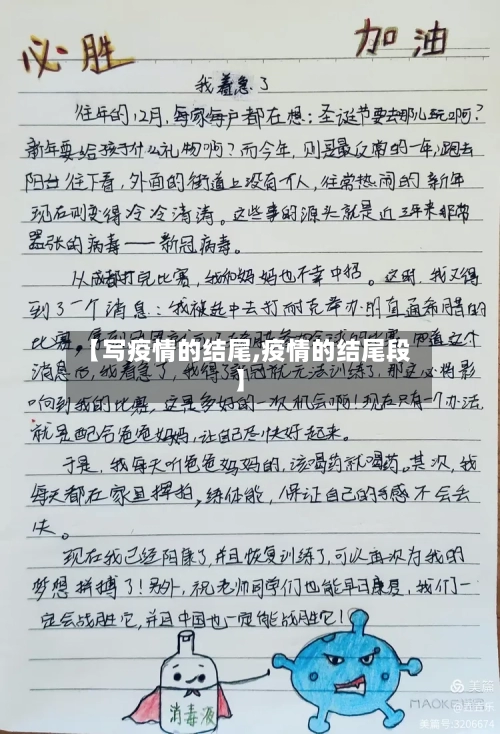 必胜 加油
我着急了
往年的12月，每家每户都在想：圣诞节要去哪儿玩啊？
新年要给孩子什么礼物啊？而今年，则是最反常的一年，跑去
阳台往下看，外面的街道上没有个人，往常热闹的新年
现在则变得冷冷清清。这些事的源头就是近三年来非常
嚣张的病毒——新冠病毒。
从成都打完比赛，我和妈妈也不幸中招。这时，我又得
到了一个消息：我被选中去打耐克举办
比赛。
【写疫情的结尾,疫情的结尾段
】
消息后，我着急了，我得了新冠就无法训练了，那这必将影
响到我的比赛，这是多好的一次机会啊！现在只有一个办法，
就是配合爸爸妈妈，让自己尽快好起来。
于是，我每天听爸爸妈妈的，该喝药就喝药。其次，我
每天都在家里挥拍，练体能，保证自己的手感不会丢
失。
现在我已经阳康了，并且恢复训练了，可以再次为我的
梦想拼搏了！另外，祝老师同学们也能早日康复，我们一
定会战胜它，并且中国也一定能战胜它！
消毒液
MAOKE
美篇
美篇号:3206674